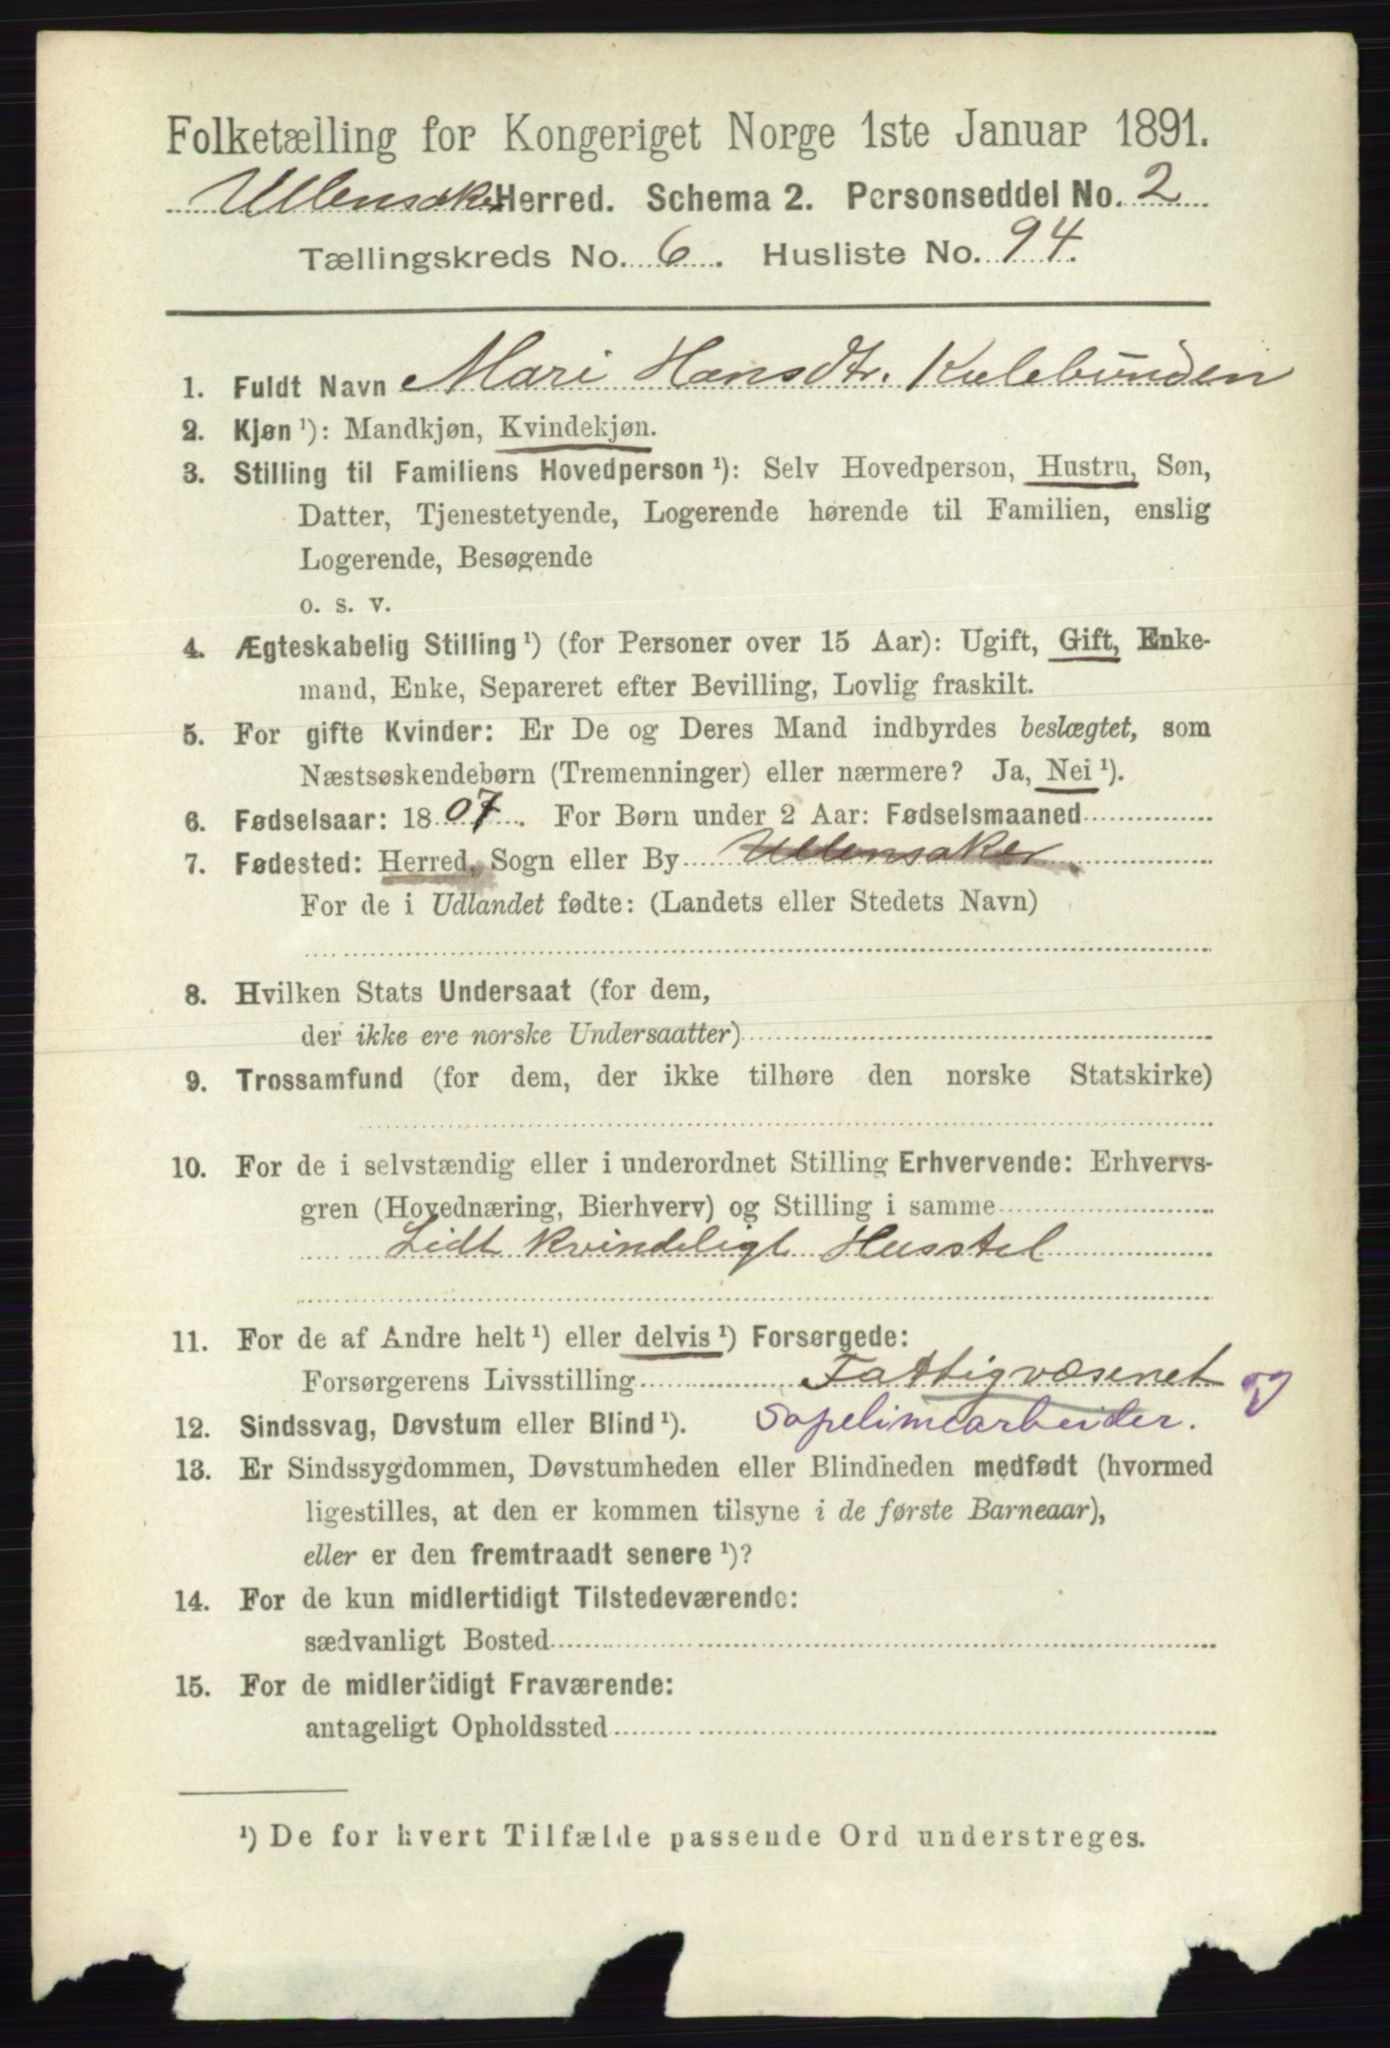 Folketælling for Kongeriget Norge 1ste Januar 1891.
Ullensaker Herred. Schema 2. Personseddel No. 2
Tællingskreds No. 6. Husliste No. 94.
1. Fuldt Navn Mari Hansdtr. Kulebunden
2. Kjøn ¹): Mandkjøn, Kvindekjøn.
3. Stilling til Familiens Hovedperson ¹): Selv Hovedperson, Hustru, Søn,
Datter, Tjenestetyende, Logerende hørende til Familien, enslig
Logerende, Besøgende
o. s. v.
4. Ægteskabelig Stilling ¹) (for Personer over 15 Aar): Ugift, Gift, Enke-
mand, Enke, Separeret efter Bevilling, Lovlig fraskilt.
5. For gifte Kvinder: Er De og Deres Mand indbyrdes beslægtet, som
Næstsøskendebørn (Tremenninger) eller nærmere? Ja, Nei ¹).
6. Fødselsaar: 1807. For Børn under 2 Aar: Fødselsmaaned
7. Fødested: Herred, Sogn eller By Ullensaker
For de i Udlandet fødte: (Landets eller Stedets Navn)
8. Hvilken Stats Undersaat (for dem,
der ikke ere norske Undersaatter)
9. Trossamfund (for dem, der ikke tilhøre den norske Statskirke)
10. For de i selvstændig eller i underordnet Stilling Erhvervende: Erhvervs-
gren (Hovednæring, Bierhverv) og Stilling i samme
Lidt kvindeligt Husstel
11. For de af Andre helt ¹) eller delvis ¹) Forsørgede:
Forsørgerens Livsstilling Fattigvæsenet og
12. Sindssvag, Døvstum eller Blind ¹). Sopelimearbeider.
13. Er Sindssygdommen, Døvstumheden eller Blindheden medfødt (hvormed
ligestilles, at den er kommen tilsyne i de første Barneaar),
eller er den fremtraadt senere ¹)?
14. For de kun midlertidigt Tilstedeværende:
sædvanligt Bosted
15. For de midlertidigt Fraværende:
antageligt Opholdssted
¹) De for hvert Tilfælde passende Ord understreges.